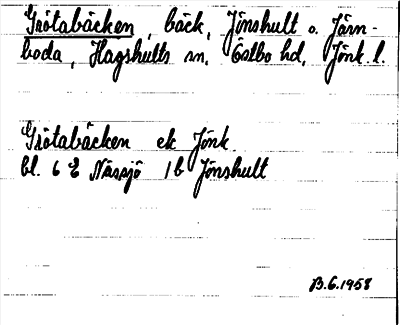 Grötabäcken, bäck, Jönshult o. Järn-
boda, Hagshults sn. Östbo hd, Jönk. l.
Grötabäcken ek Jönk.
bl. 6 E Nässjö 1b Jönshult
B.G.1958